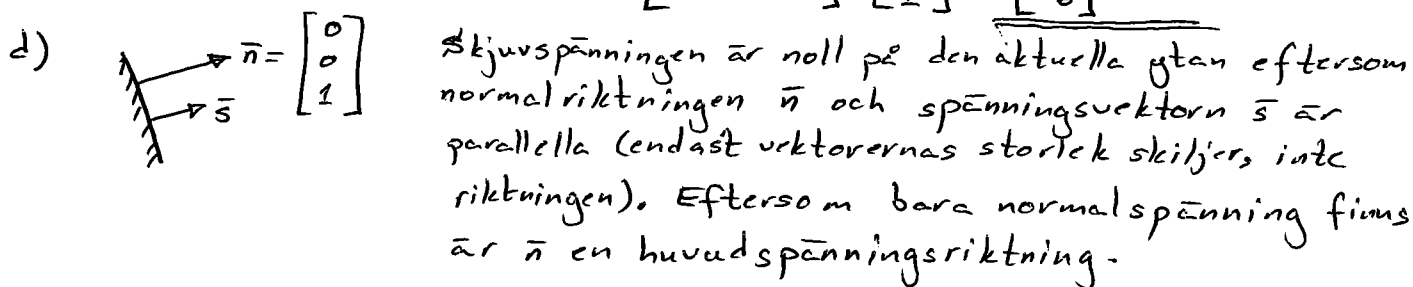 d) n̄ = [0 0 1] Skjuvspänningen är noll på den aktuella ytan eftersom
normalriktningen n̄ och spänningsvektorn s̄ är
s̄
parallella (endast vektorernas storlek skiljer, inte
riktningen). Eftersom bara normalspänning finns
är n̄ en huvudspänningsriktning.